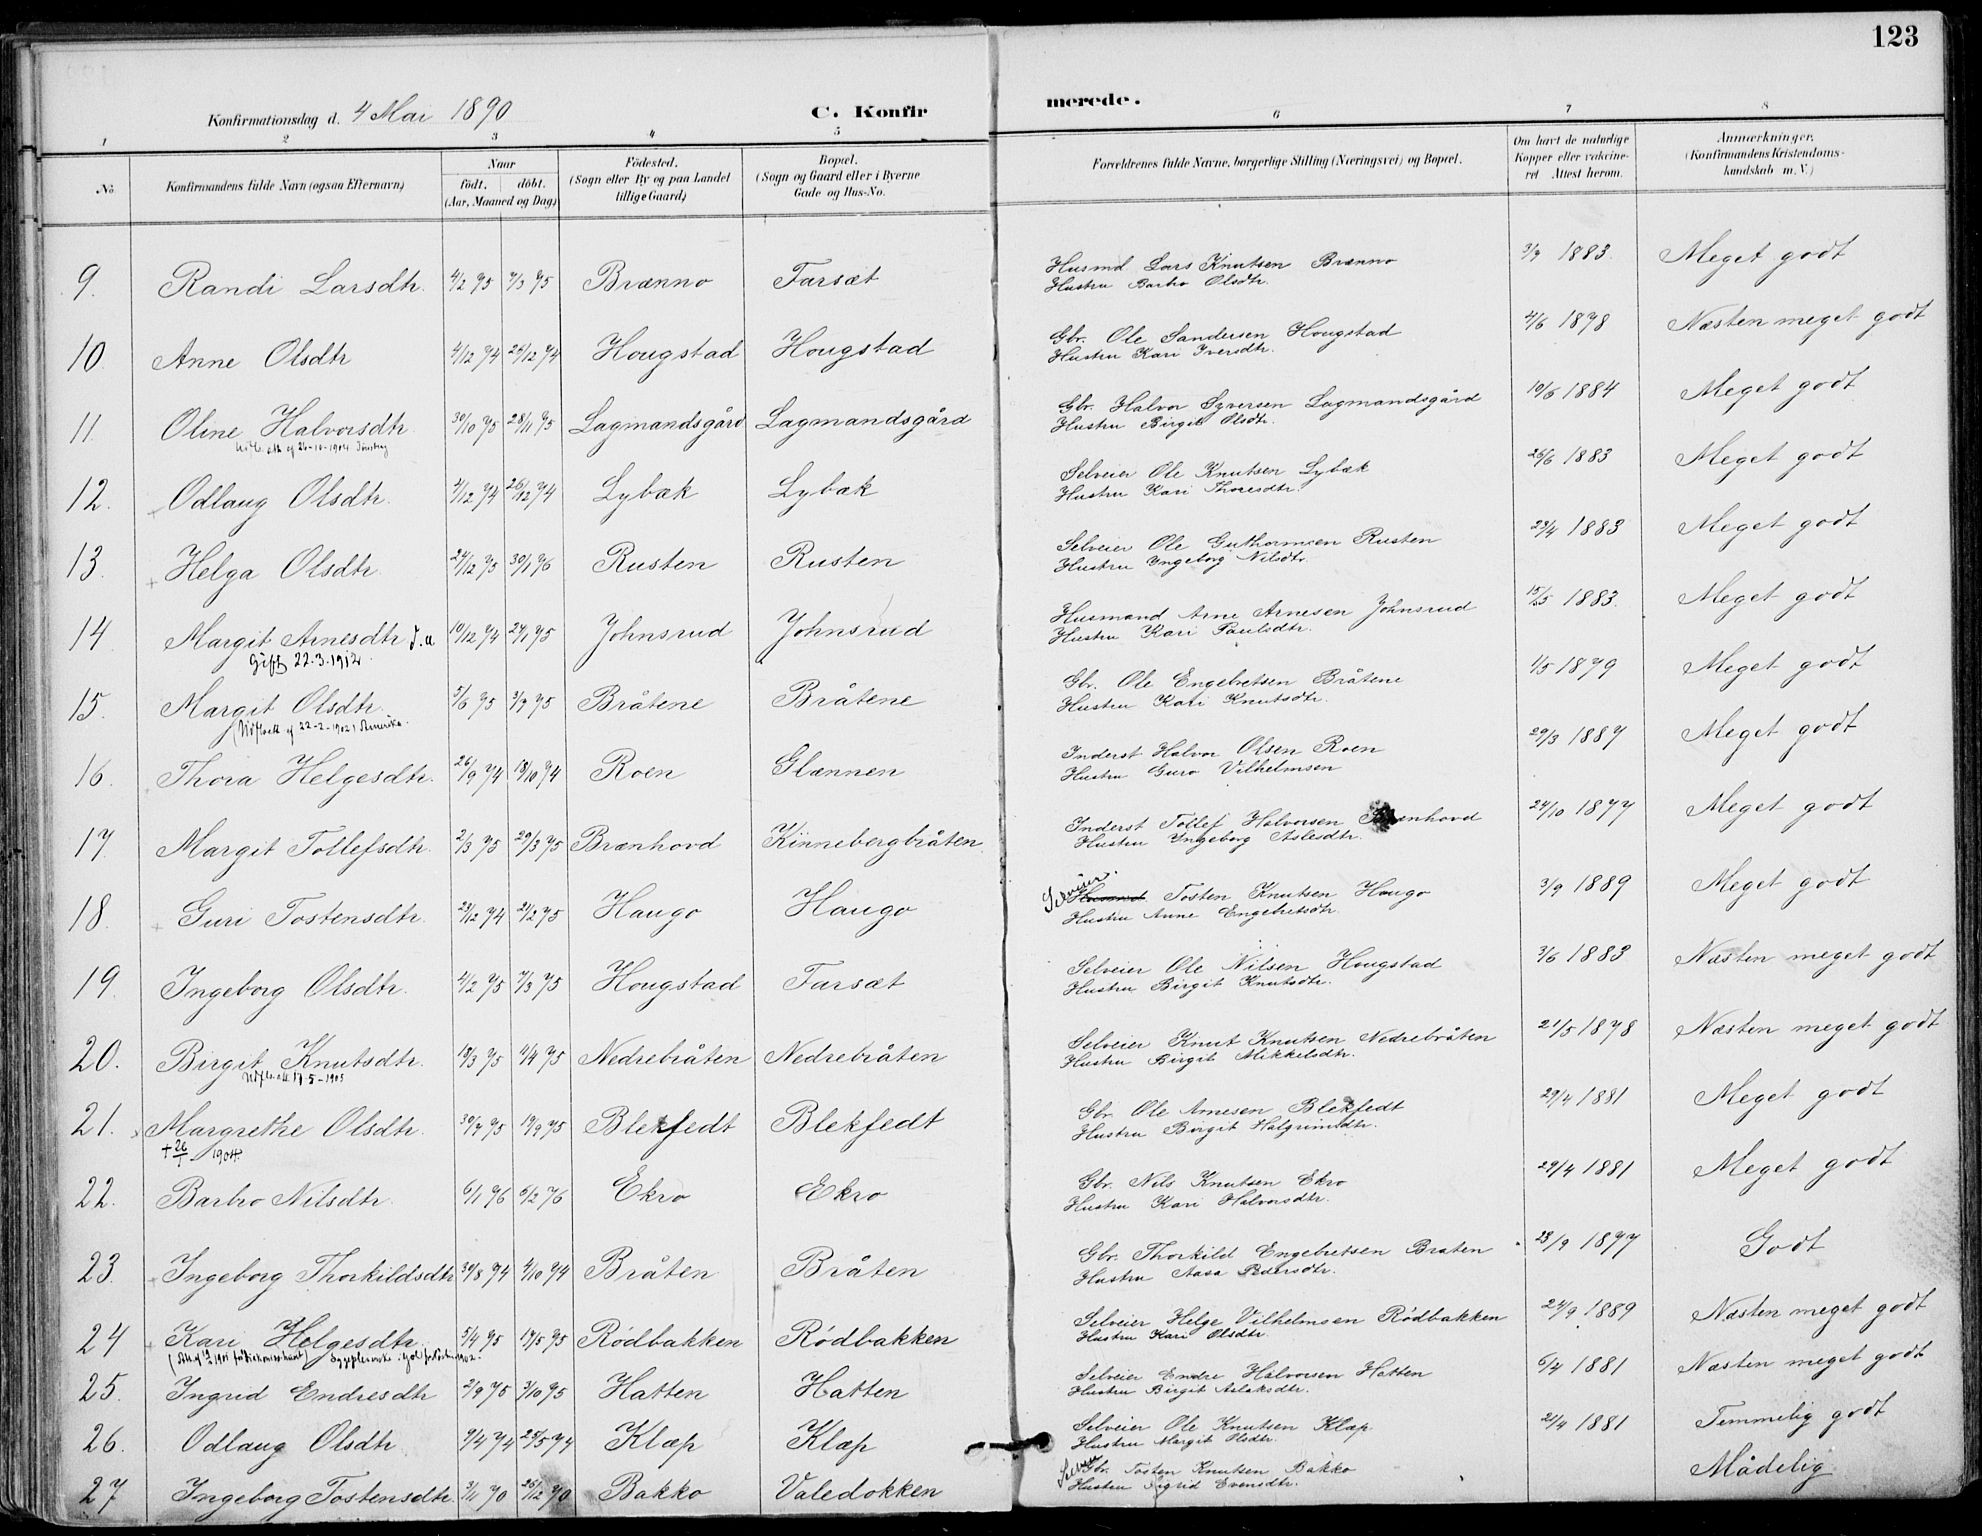 123
Konfirmationsdag d. 4 Mai 1890
C. Konfirmerede.
1 2 3 4 5 6 7 8
No.
Konfirmandens fulde Navn (ogsaa Efternavn)
Naar
født. døbt.
(Aar, Maaned og Dag)
Fødested.
(Sogn eller By og paa Landet
tillige Gaard)
Bopæl.
(Sogn og Gaard eller i Byerne
Gade og Hus-No.
Forældrenes fulde Navne, borgerlige Stilling (Næringsvei) og Bopæl.
Om havt de naturlige
Kopper eller vakcine-
ret Attest herom.
Anmærkninger.
(Konfirmandens Kristendoms-
kundskab m. V.)
9. Randi Larsdtr. 4/2 75 7/3 75 Brænno Farsæt Husmd Lars Knutsen Brænno 3/9 1883. Meget godt
Hustru Barbro Olsdtr.
10. Anne Olsdtr 4/12 74 26/12 74 Hougstad Hougstad Gbr. Ole Sandersen Hougstad 4/6 1878 Næsten meget godt
Hustru Kari Iversdtr.
11. Oline Halvorsdtr. 30/10 75 28/11 75 Lagmandsgård Lagmandsgård Gbr. Halvor Syversen Lagmandsgård 10/6 1884 Meget godt
26-10-1904
Hustru Birgit Olsdtr.
12. Odlaug Olsdtr. 4/12 74 26/12 74 Lybæk Lybæk Selveier Ole Knutsen Lybæk 26/6 1883 Meget godt
Hustru Kari Thoresdtr.
13. Helga Olsdtr 24/12 75 30/1 76 Rusten Rusten Selveier Ole Guthormsen Rusten 23/4 1883 Meget godt
Hustru Ingeborg Nilsdtr.
14. Margit Arnesdtr 10/12 74 24/1 75 Johnsrud Johnsrud Husmand Arne Arnesen Johnsrud 15/5 1883. Meget godt
Gift 22.3.1912.
Hustru Kari Paulsdtr.
15. Margit Olsdtr. 5/6 75 3/7 75 Bråtene Bråtene Gbr. Ole Engebretsen Bråtene 1/5 1879 Meget godt
22-2-1902 Amerika.
Hustru Kari Knutsdtr.
16. Thora Helgesdtr. 26/9 74 18/10 74 Roen Glænnen Inderst Halvor Olsen Roen 29/3 1887 Meget godt
Hustru Guro Vilhelmsen
17. Margit Tollefsdtr. 2/3 75 29/3 75 Brænhovd Kinnebergbråten Inderst Tollef Halvorsen Brænhovd 24/10 1877 Meget godt
Hustru Ingeborg Aslesdtr.
18. Guri Tostensdtr. 23/12 74 21/2 75 Haugo Haugo Selveier Tosten Knutsen Haugo 3/9 1889 Meget godt
Hustru Anne Engebretsdtr.
19. Ingeborg Olsdtr. 4/2 75 7/3 75 Hougstad Farsæt Selveier Ole Nilsen Hougstad 3/6 1883 Næsten meget godt
Hustru Birgit Knutsdtr.
20. Birgit Knutsdtr. 18/3 75 11/4 75 Nedrebråten Nedrebråten Selveier Knut Knutsen Nedrebråten 21/5 1878 Næsten meget godt
5-1903
Hustru Birgit Mikkelsdtr.
21. Margrethe Olsdtr. 30/7 75 19/9 75 Blekfedt Blekfedt Gbr. Ole Arnesen Blekfedt 29/4 1881 Meget godt
+ 26/1 1904.
Hustru Birgit Halgrimsdtr.
22. Barbro Nilsdtr. 6/1 76 6/2 76 Ekro Ekro Gbr. Nils Knutsen Ekro 29/4 1881 Meget godt
Hustru Kari Halvorsdtr.
23. Ingeborg Thorkildsdtr 30/8 74 4/10 74 Bråten Bråten Gbr. Thorkild Engebretsen Braten 23/9 1877 Godt
Hustru Aasa Pedersdtr.
24 Kari Helgesdtr. 5/4 75 17/5 75 Rødbakken Rødbakken Selveier Helge Vilhelmsen Rødbakken 24/9 1889 Næsten meget godt
Hustru Kari Olsdtr.
25. Ingrid Endresdtr 2/9 75 3/10 75 Hatten Hatten Selveier Endre Halvorsen Hatten 6/4 1881 Næsten meget godt
Hustru Birgit Aslaksdtr.
26. Odlaug Olsdtr. 9/4 74 25/5 74 Klæp Klæp Selveier Ole Knutsen Klæp 21/4 1881 Temmelig godt
Hustru Margit Olsdtr.
27 Ingeborg Tostensdtr. 3/11 70 26/12 70 Bakko Valedokken Gbr. Tosten Knutsen Bakko Mådelig
Hustru Sigrid Evensdtr.